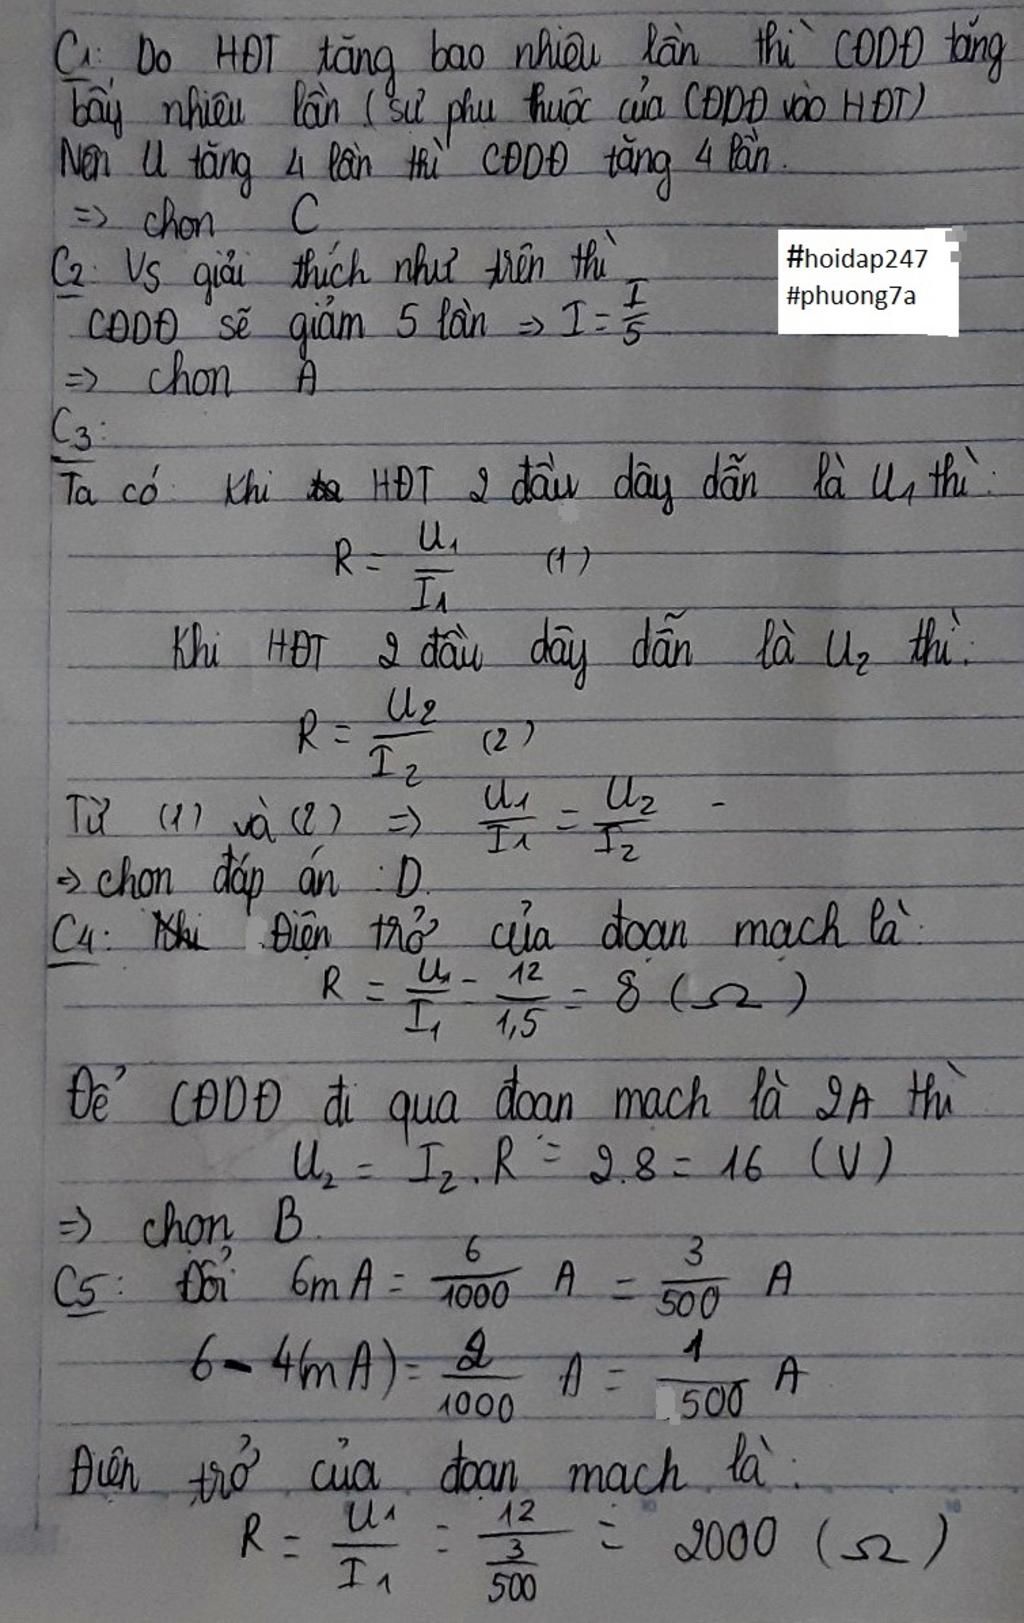 C1: Do HĐT tăng bao nhiêu lần thì CĐDĐ tăng
bấy nhiêu lần (sự phụ thuộc của CĐDĐ vào HĐT)
Nên U tăng 4 lần thì CĐDĐ tăng 4 lần.
=> chọn C
#hoidap247
#phuong7a
C2: Vs giải thích như trên thì
CĐDĐ sẽ giảm 5 lần => I = I/5
=> chọn A
C3:
Ta có khi HĐT 2 đầu dây dẫn là U1 thì:
R = U1/I1 (1)
Khi HĐT 2 đầu dây dẫn là U2 thì:
R = U2/I2 (2)
Từ (1) và (2) => U1/I1 = U2/I2
=> chọn đáp án : D.
C4: Điện trở của đoạn mạch là:
R = U1/I1 = 12/1,5 = 8 (Ω)
Để CĐDĐ đi qua đoạn mạch là 2A thì
U2 = I2.R = 2.8 = 16 (V)
=> chọn B.
C5: Đổi 6mA = 6/1000 A = 3/500 A
6 - 4(mA) = 2/1000 A = 1/500 A
Điện trở của đoạn mạch là:
R = U1/I1 = 12/(3/500) = 2000 (Ω)